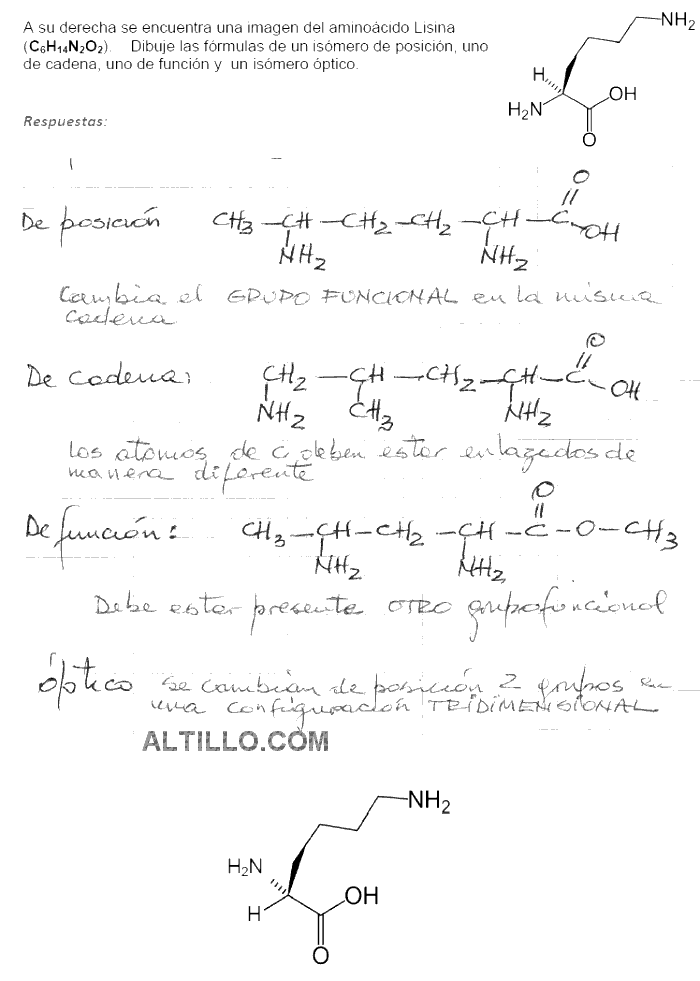 A su derecha se encuentra una imagen del aminoácido Lisina
(C₆H₁₄N₂O₂). Dibuje las fórmulas de un isómero de posición, uno
de cadena, uno de función y un isómero óptico.
NH₂
H
H₂N
OH
O
Respuestas:
De posición CH₃ — CH — CH₂ — CH₂ — CH — C — OH
O
NH₂ NH₂
Cambia el GRUPO FUNCIONAL en la misma
cadena
De cadena: CH₂ — CH — CH₂ — CH — C — OH
O
NH₂ CH₃ NH₂
Los atomos de C deben estar enlazados de
manera diferente
De función: CH₃ — CH — CH₂ — CH — C — O — CH₃
O
NH₂ NH₂
Debe estar presente OTRO grupo funcional
óptico se cambian de posición 2 grupos en
una configuración TRIDIMENSIONAL
ALTILLO.COM
NH₂
H₂N
H
OH
O